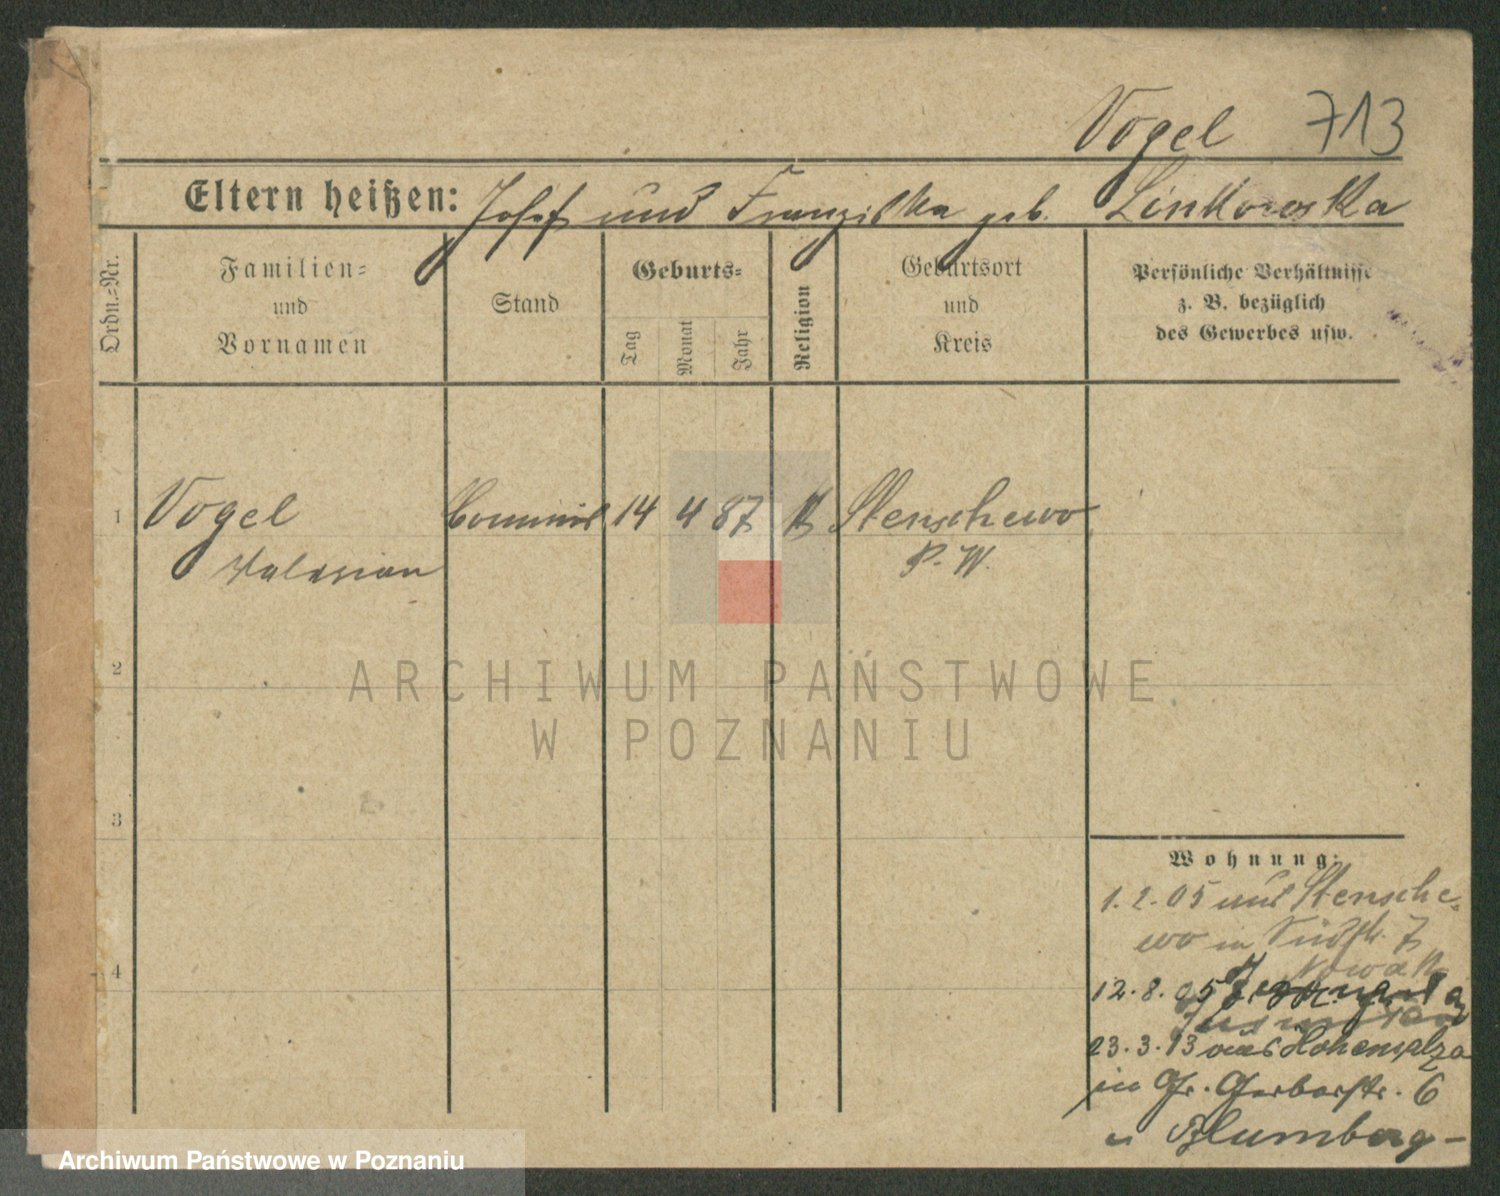 Vogel 713
Eltern heißen: Josef und Franziska geb. Linkowska
Ordn.-Nr.
Familien-
und
Vornamen
Stand
Geburts-
Tag
Monat
Jahr
Religion
Geburtsort
und
Kreis
Persönliche Verhältnisse
z. B. bezüglich
des Gewerbes usw.
1 Vogel Commis 14 4 87 k Stenschewo
Valerian P. W.
2
3
4
Wohnung:
1.2.05 aus Stensche-
wo in Südstr. 7
Nowak
12.8.05
23.3.13 aus Hohensalza
in Gr. Gerberstr. 6
Blumberg
ARCHIWUM PAŃSTWOWE
W POZNANIU
Archiwum Państwowe w Poznaniu